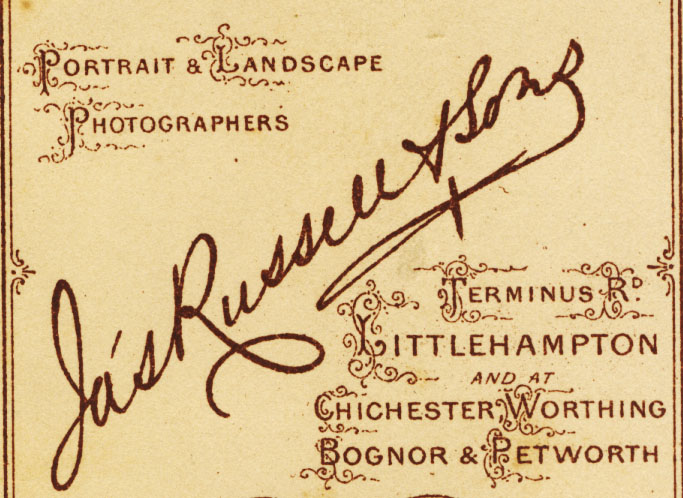 PORTRAIT & LANDSCAPE
PHOTOGRAPHERS
Jas Russell & Sons
TERMINUS RD.
LITTLEHAMPTON
AND AT
CHICHESTER, WORTHING
BOGNOR & PETWORTH